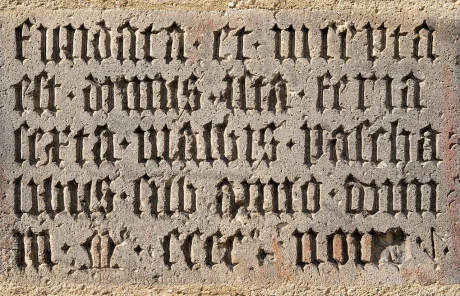 fundata · et · incepta
est · domus · ista · feria
sexta · inalbis · pascha
libus · sub · anno · domi
ni · m · cccc · nono ·